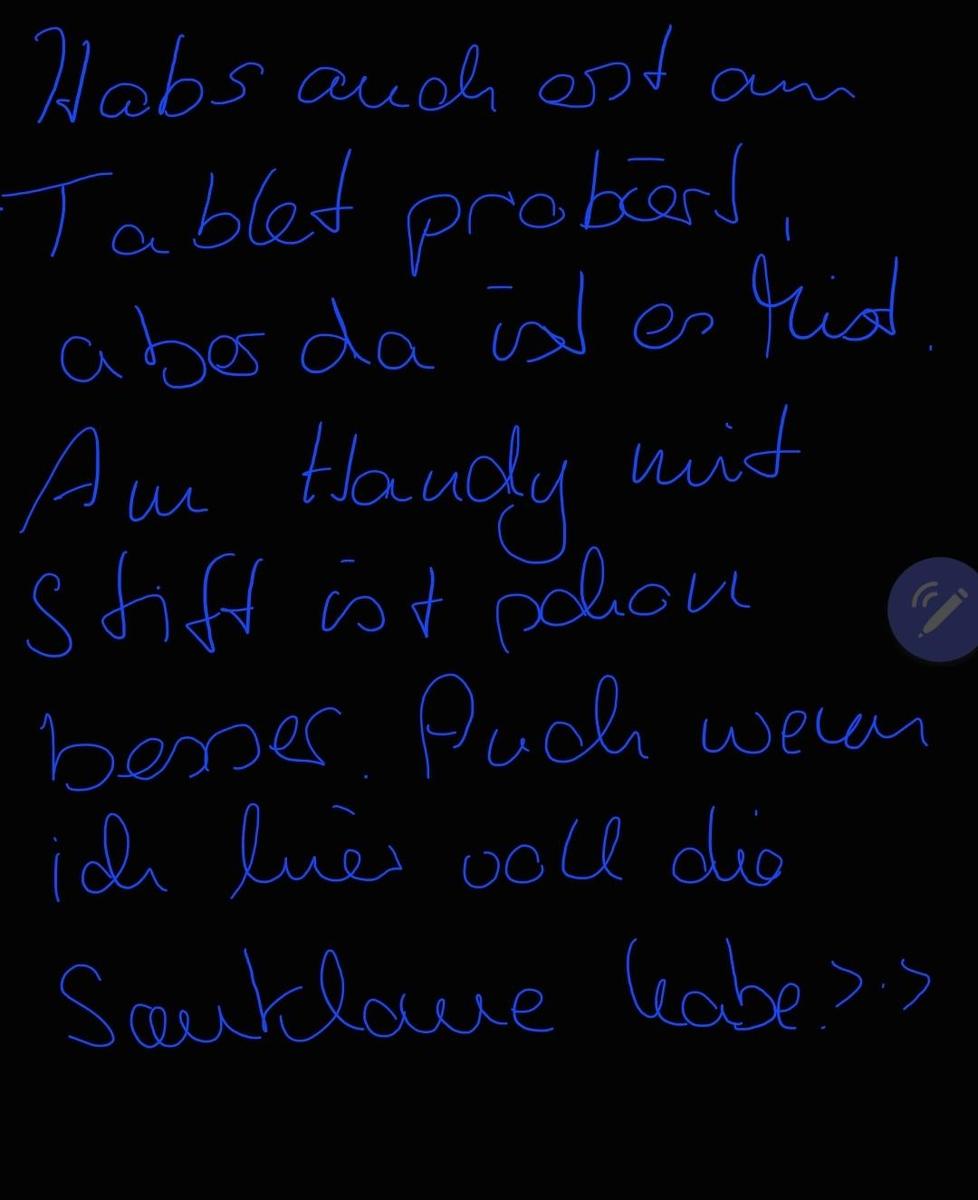 Habs auch erst am
Tablet probiert,
aber da ist es Mist.
Am Handy mit
Stift ist schon
besser. Auch wenn
ich hier voll die
Sauklaue habe. >.>